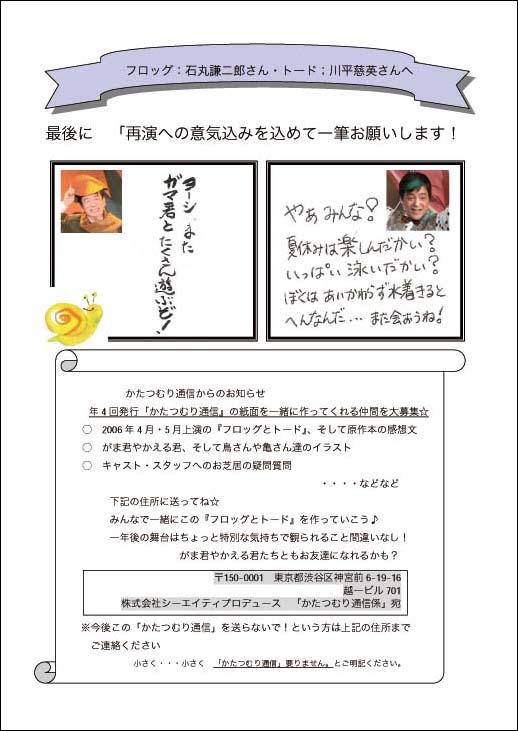 フロッグ：石丸謙二郎さん・トード；川平慈英さんへ
最後に　「再演への意気込みを込めて一筆お願いします！
ヨーシ、また
ガマ君とたくさん遊ぶど！
やぁ みんな？
夏休みは楽しんだかい？
いっぱい 泳いだかい？
ぼくは あいかわらず水着きると
へんなんだ… また会おうね！
かたつむり通信からのお知らせ
年４回発行「かたつむり通信」の紙面を一緒に作ってくれる仲間を大募集☆
○　2006 年 4 月・5 月上演の『フロッグとトード』、そして原作本の感想文
○　がま君やかえる君、そして鳥さんや亀さん達のイラスト
○　キャスト・スタッフへのお芝居の疑問質問
・・・・などなど
下記の住所に送ってね☆
みんなで一緒にこの『フロッグとトード』を作っていこう♪
一年後の舞台はちょっと特別な気持ちで観られること間違いなし！
がま君やかえる君たちともお友達になれるかも？
〒150-0001　東京都渋谷区神宮前 6-19-16
越一ビル 701
株式会社シーエイティプロデュース　「かたつむり通信係」宛
※今後この「かたつむり通信」を送らないで！という方は上記の住所まで
ご連絡ください
小さく・・・小さく　「かたつむり通信」要りません。とご明記ください。